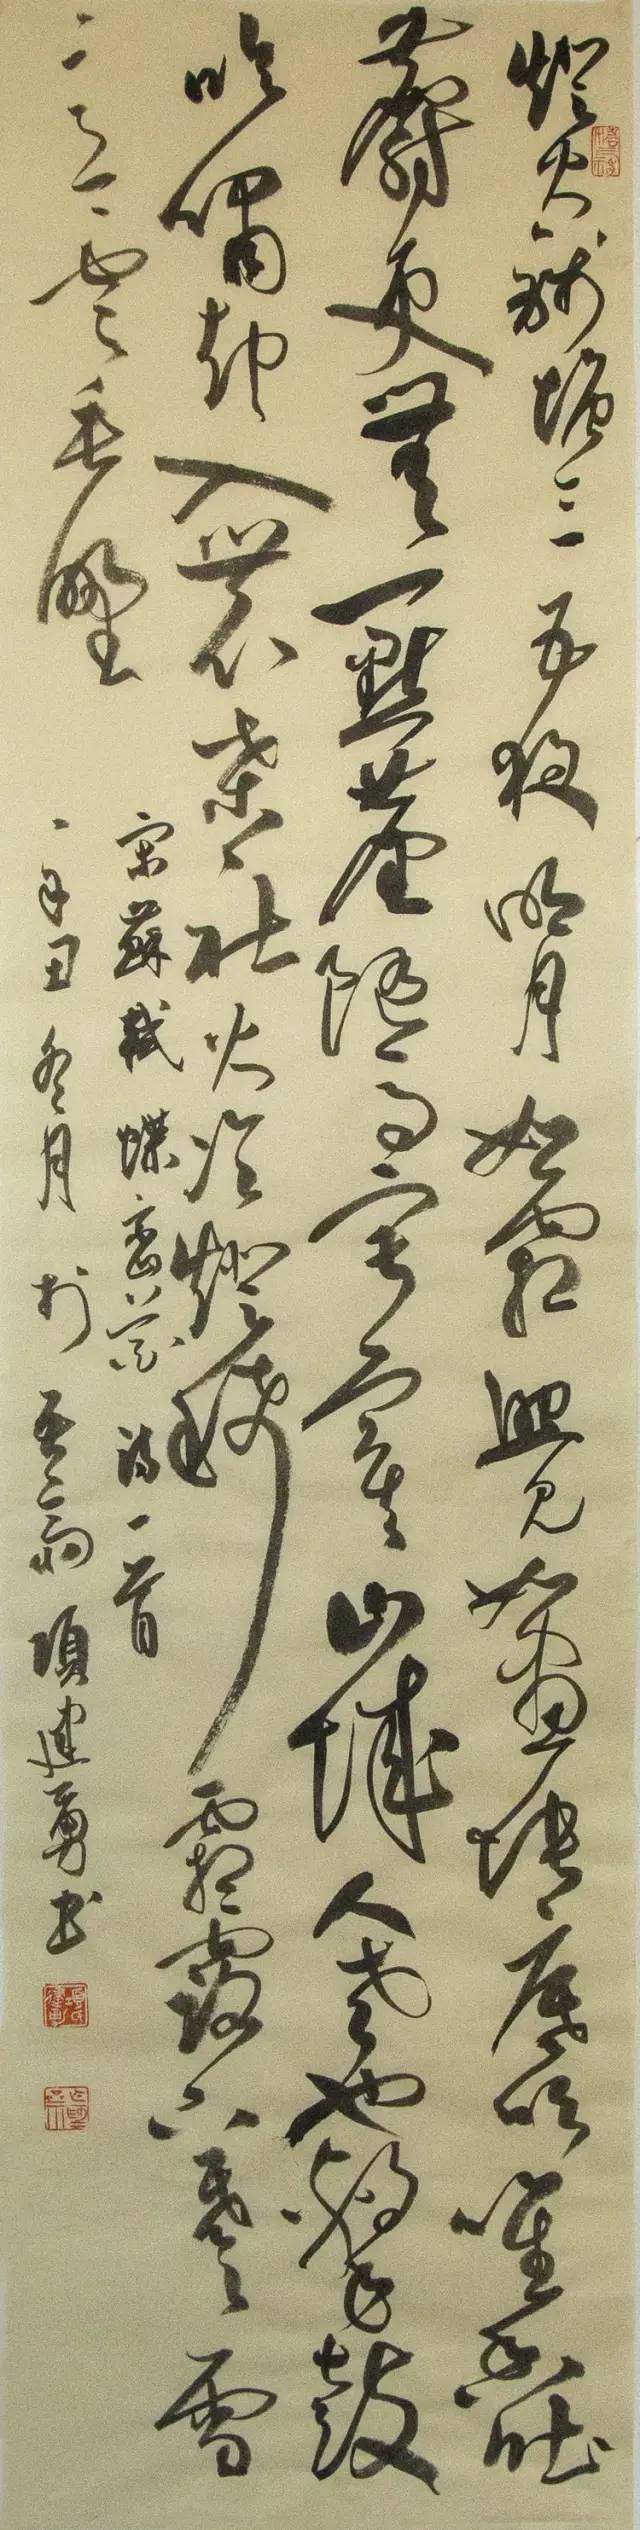 燈火錢塘三五夜明月如霜照見如畫帳底吹香吐
麝更無一點塵隨馬寂寞山城人老也擊鼓
吹簫却入農桑社火冷燈稀霜露下昏雪
意雲垂野
宋蘇軾蝶戀花詩一首
辛丑冬月於項建勇書